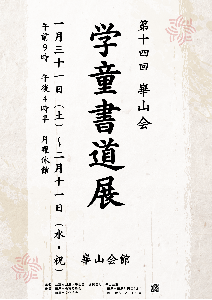 第十四回 崋山会
学童書道展
一月三十一日（土）～二月十一日（水・祝）
午前９時 午後４時半 月曜休館
崋山会館